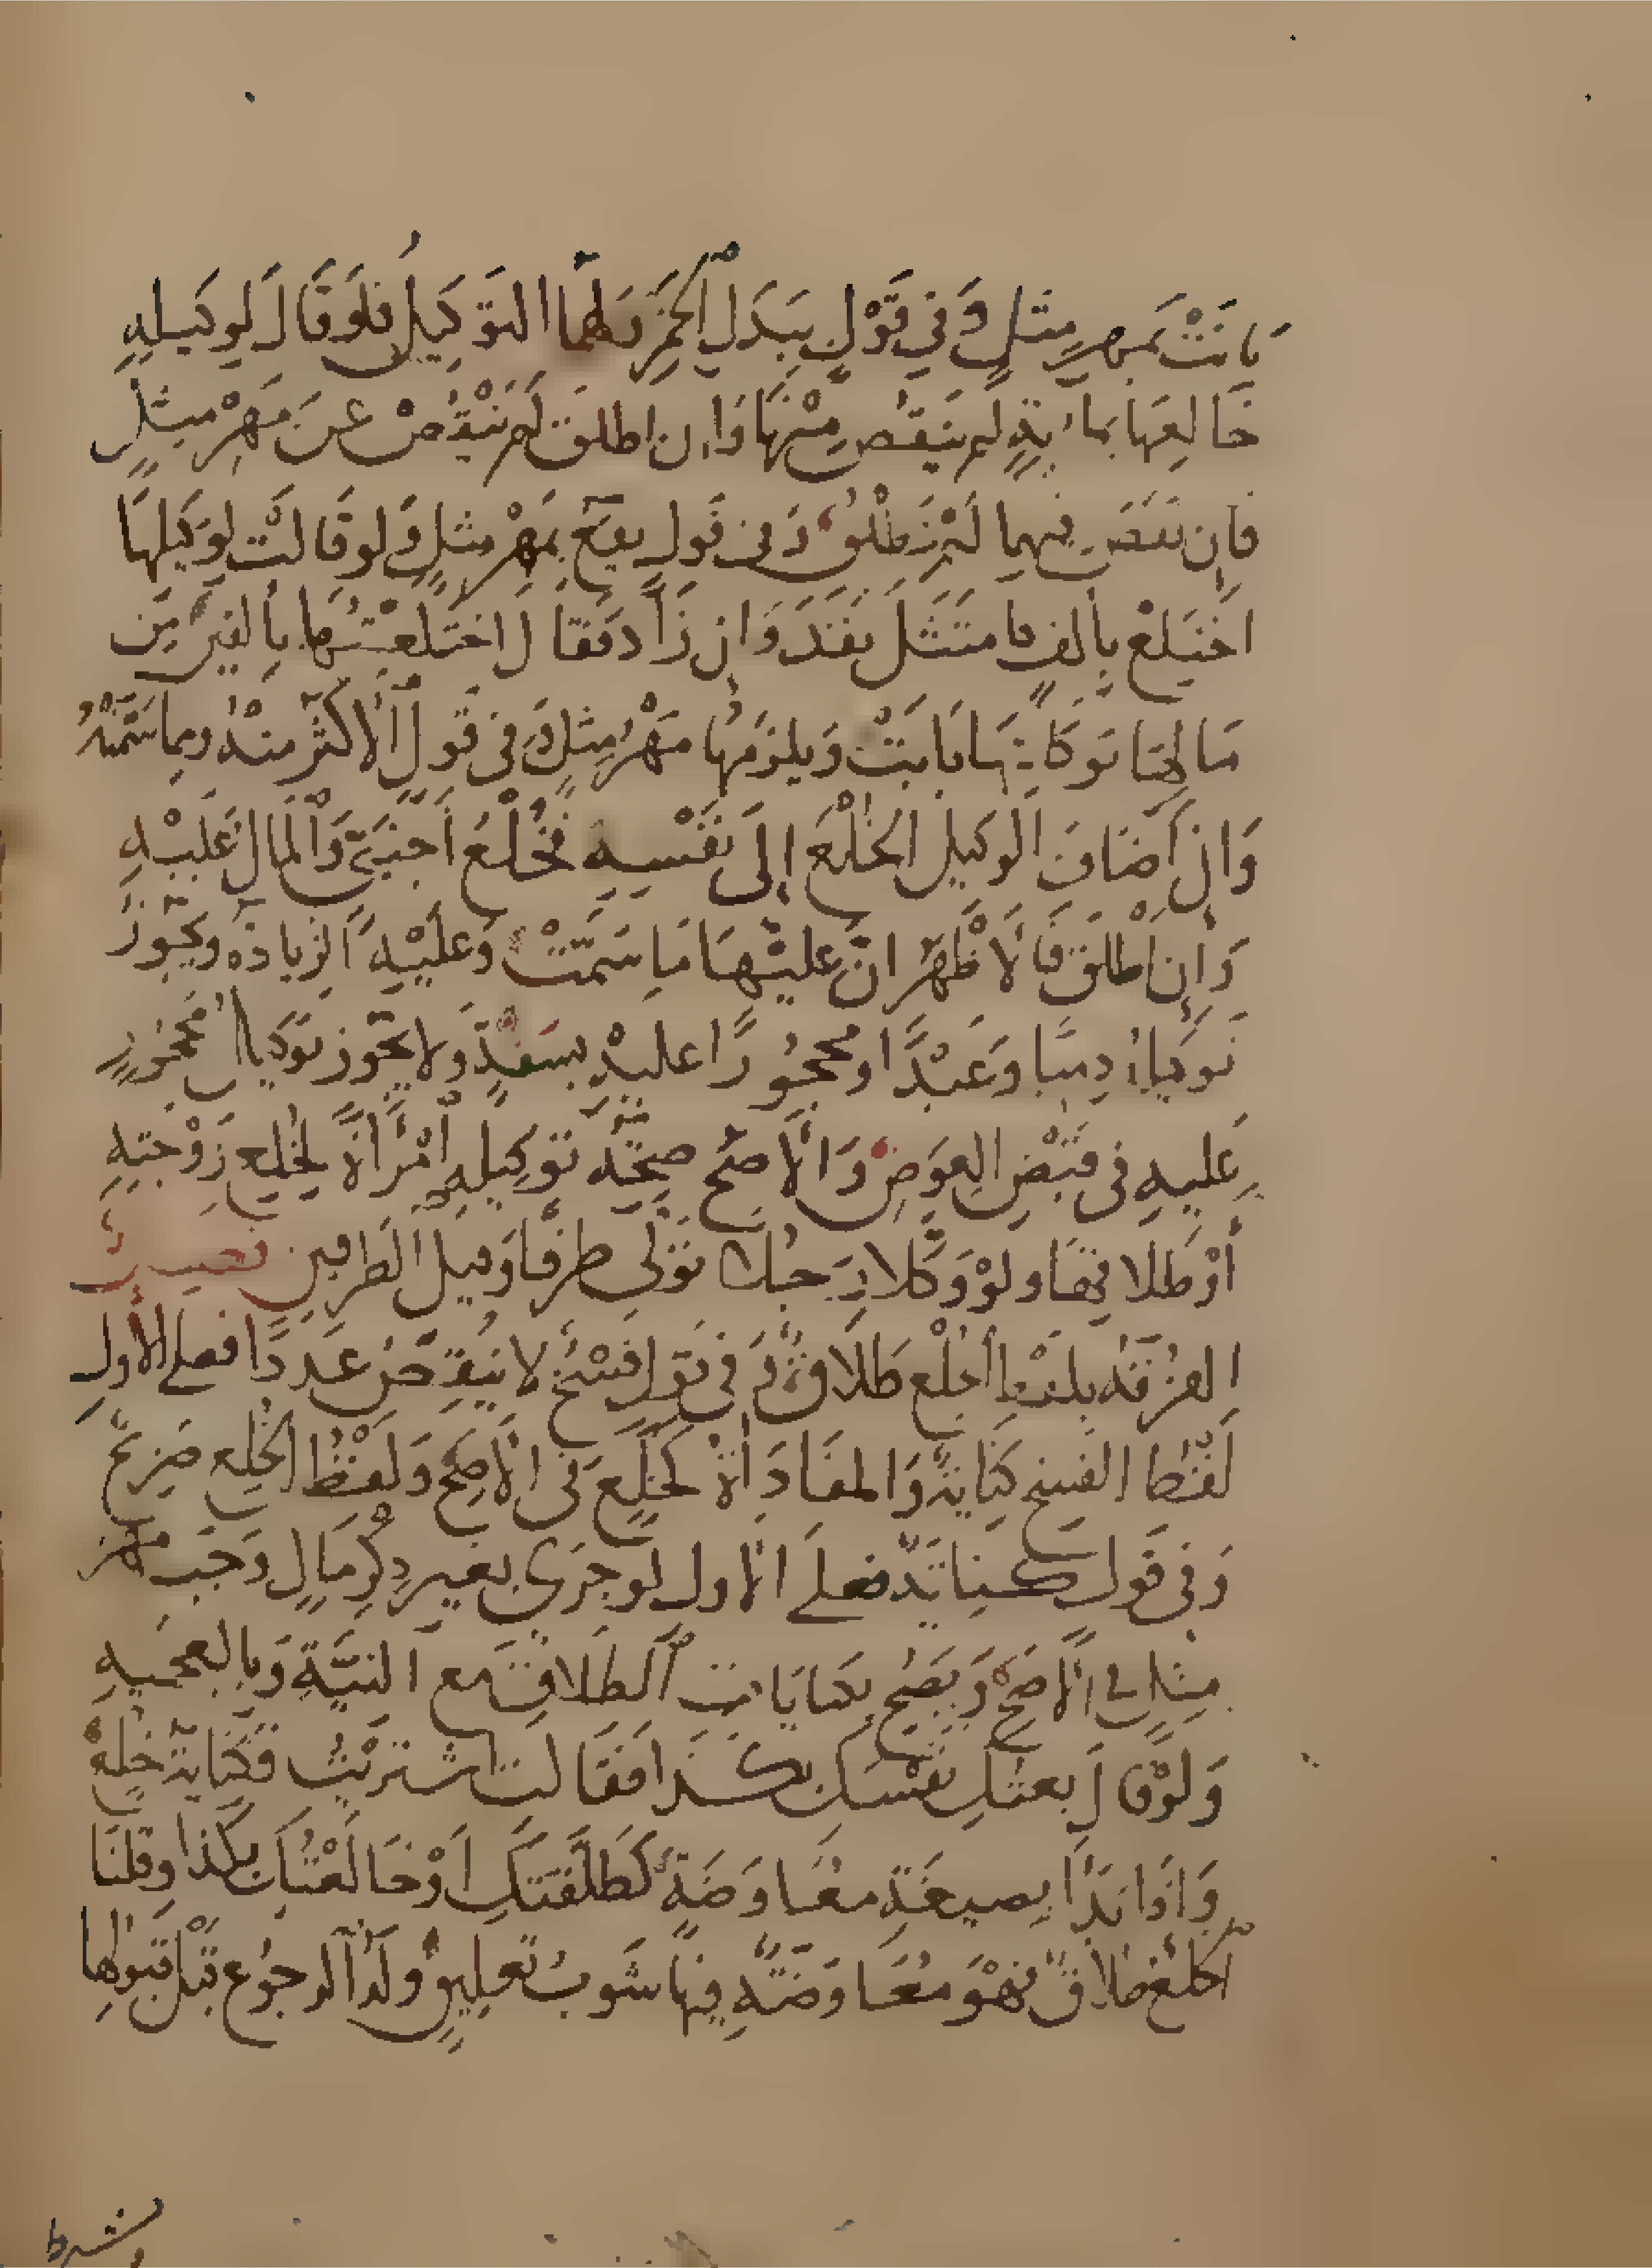 بَانَتْ بمَهرِ مِثلٍ وَفي قَوْلٍ بِبَدَلِ الخَمْرِ وَلهُمَا التوَكِيلُ فلَو قَالَ لوكيلِهِ
خَالِعهَا بمائةٍ لم يَنقُص مِنْهَا وَان اطلقَ لَم يَنْقُصْ عَنْ مَهْرِ مِثلٍ
فان نقَصَ فيهما لَمْ تَطْلُق وَفي قَولٍ يقعُ بمَهْرِ مثلٍ وَلو قَالَتْ لوَكيلهَا
اختَلعْ بألفٍ فامتثَلَ نفَذَ وَان زَادَ فقَالَ اختلعْتُهَا بألفَينِ مِن
مَالهَا بوَكالتهَا بَانَتْ وَيلزمُهَا مَهْرُ مِثلٍ وَفي قَولٍ الأكثرُ منْهُ ومما سَمَّتْهُ
وَان أضَافَ الوكيلُ الخُلْعَ إلَى نَفْسِهِ فخُلْعُ أجْنَبيٍّ وَالمَالُ عَلَيْهِ
وَإن أطْلقَ فالأظْهَرُ انَّ عَليْهَا مَا سَمَّتْ وَعَلَيْهِ الزيادَة وَيجُوزُ
تَوكيلهُ ذِميّا وَعَبْدًا او محجُورًا عَليهِ بسَفَهٍ وَلا يجُوز تَوكيلُ مَحْجُورٍ
عَليهِ في قَبْضِ العِوَضِ وَالأصَحُّ صِحّة تَوكِيلهِ امْرَأةً لخُلعِ زَوْجَتِهِ
أوْ طَلاقِهَا وَلوْ وَكَّلا رَجُلاً تَوَلَّى طَرفًا وَقيلَ الطرفَينِ فصل
الفُرْقَةُ بلَفْظِ الخُلْع طَلاقٌ وَفي قَولٍ فَسْخٌ لا يَنقُصُ عَدَدًا فعلى الأول
لَفْظُ الفَسْخِ كنَايةٌ وَالمفَادَاةُ كَخُلعٍ في الأصَحِّ وَلَفْظُ الخُلع صَريحٌ
وَفي قَول كنَايَةٌ فعلَى الأول لو جَرَى بغير ذِكْرِ مَالٍ وَجَبَ مَهْرُ
مِثلٍ في الأصَحِّ وَيَصِحُّ بكنايَاتِ الطَلاقِ مَعَ النِّيَّةِ وَبالعجميَّةِ
وَلوْ قَالَ بعتُكِ نَفْسَكِ بكَذا فقَالَت اشتريْتُ فكنَايَةُ خُلعٍ
وَاذَا بَدَأ بصيغَةِ معَاوَضَةٍ كطَلَّقتكِ أوْ خَالَعْتُكِ بكذا وَقلنَا
الخُلعُ طَلاقٌ فهوَ مُعَاوَضَةٌ فيهَا شَوبُ تَعليقٍ وَلَهُ الرجُوعُ قَبْلَ قَبُولِهَا
بشرط